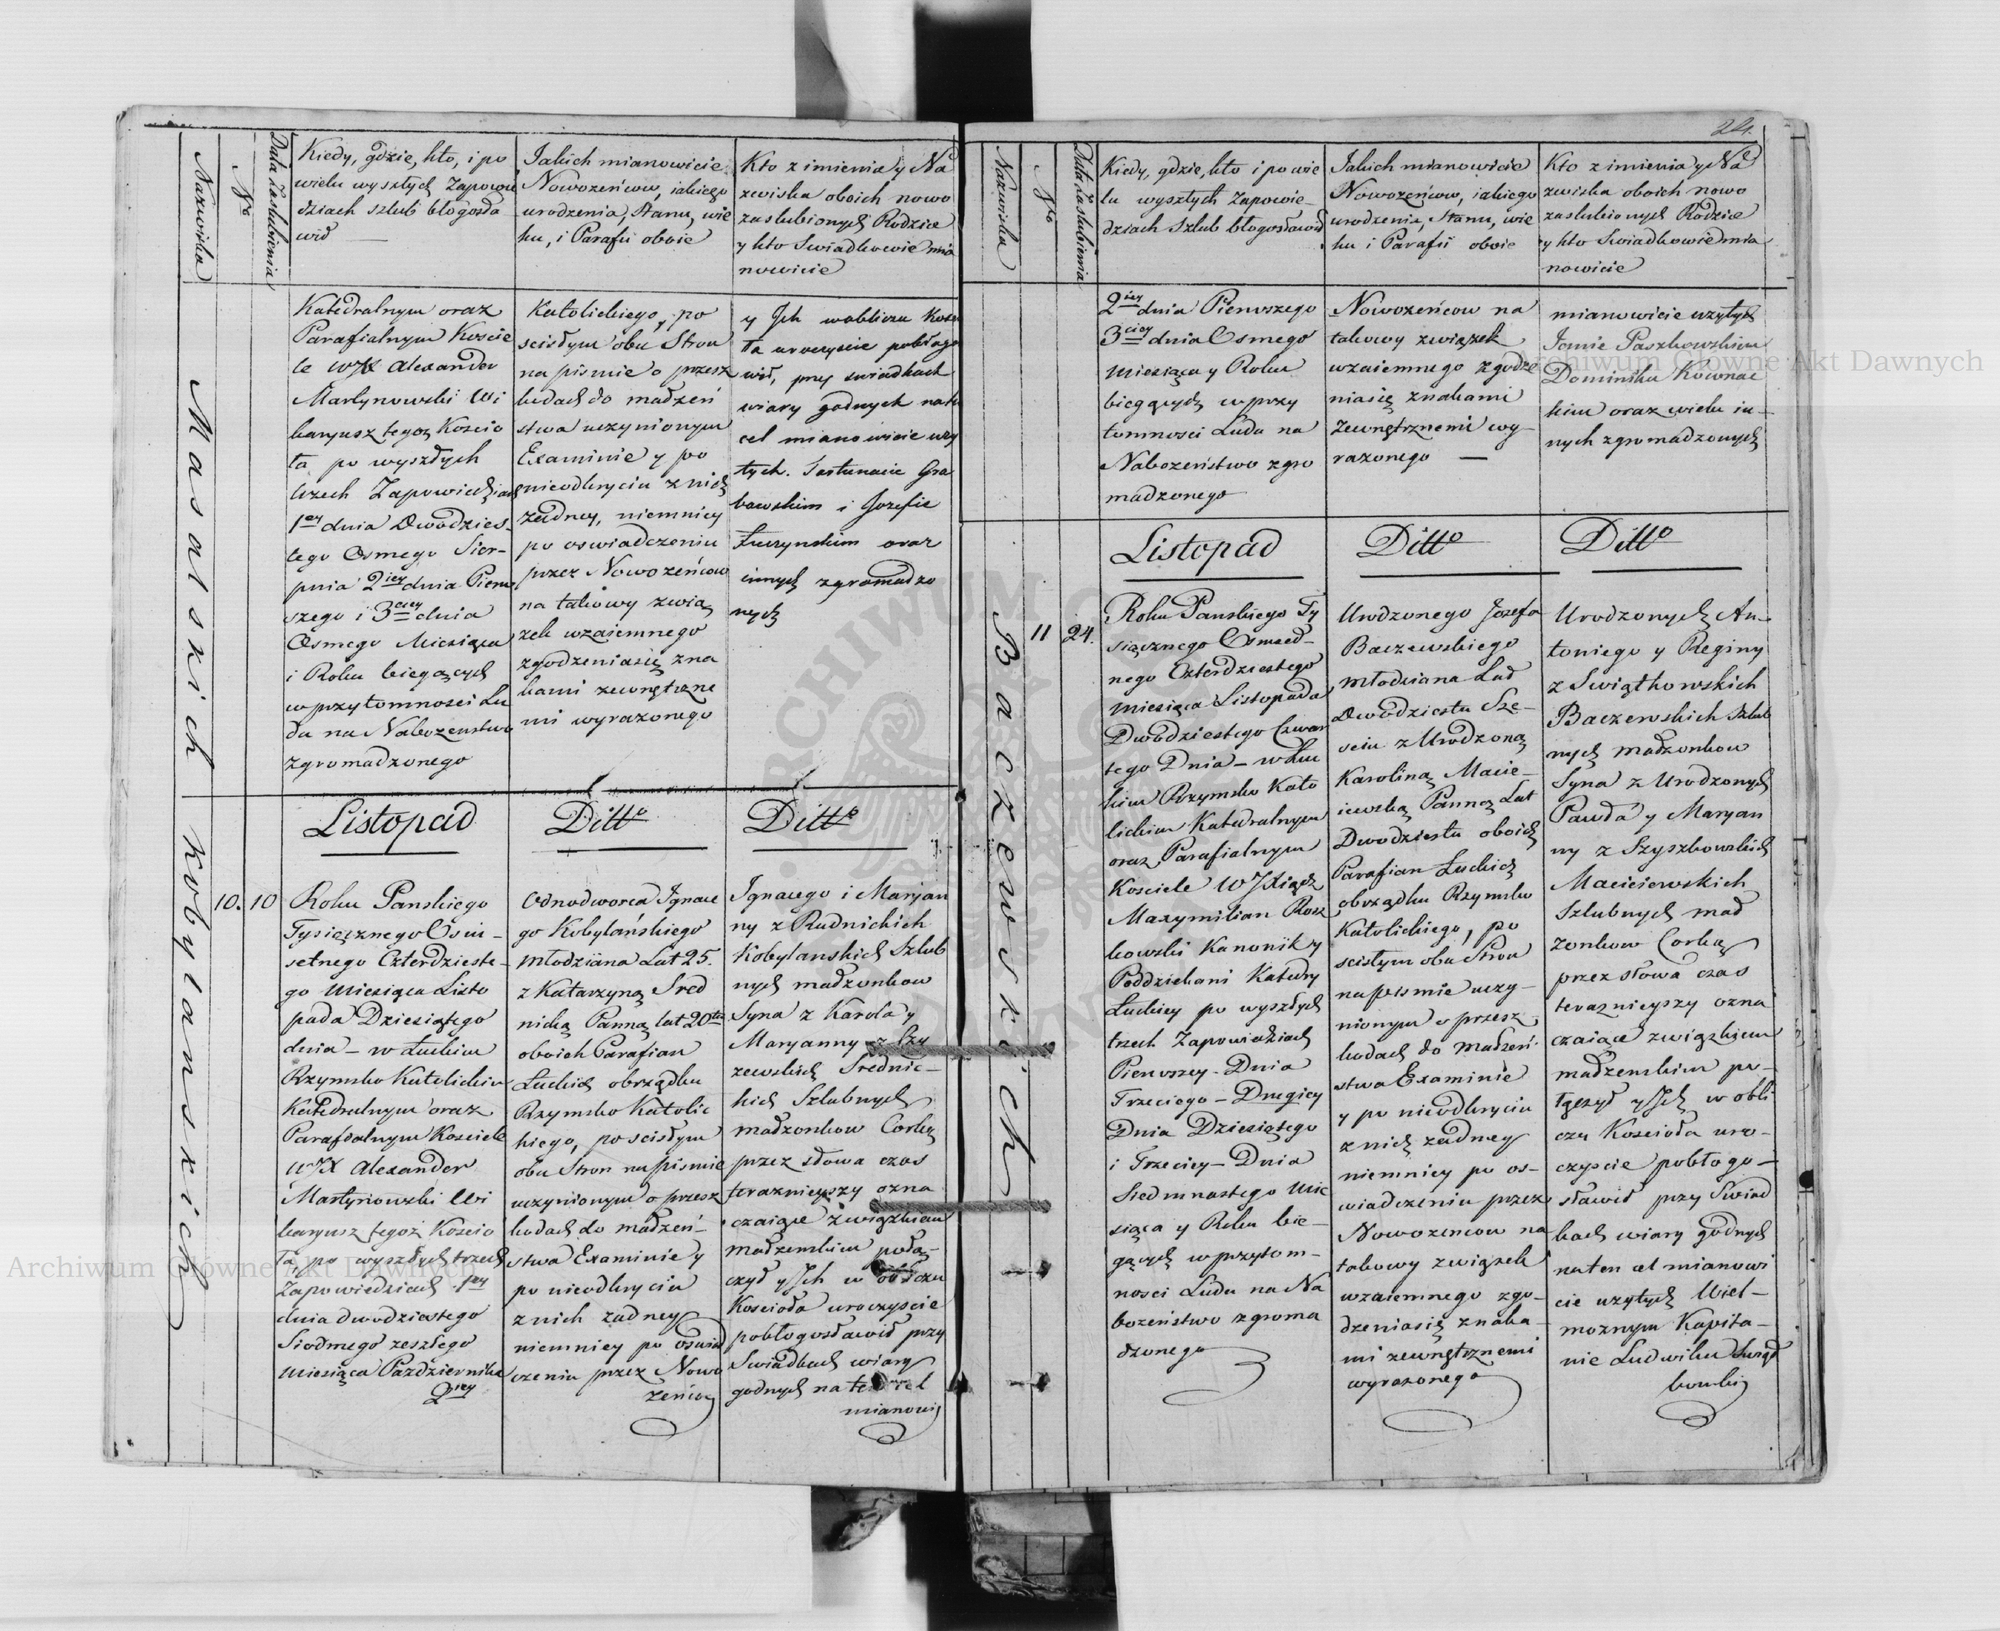 Nazwiska
No
Data Zaslubienia
Kiedy, gdzie, kto, i po
wielu wyszłych Zapowie
dziach szlub błogosła
wił —
Jakich mianowicie
Nowozeńcow, iakiego
urodzenia, Stanu, wie
ku, i Parafii oboie
Kto z imienia y Na
zwiska oboich nowo
zaslubionych Rodzice
y kto Swiadkowie mia
nowicie
Masalskich
Katedralnym oraz
Parafialnym Koscie
le WJX Alexander
Martynowski Wi
karyusz tegoż Koscio
ła po wyszłych
trzech Zapowiedziach
1ey dnia Dwodzies-
tego Osmego Sier-
pnia 2iey dnia Pierw
szego i 3ciey dnia
Osmego Miesiąca
i Roku biegących
w przytomnosci Lu
du na Nabozenstwo
zgromadzonego
Katolickiego, po
scisłym obu Stron
na pismie o przesz
kodach do małżeń
stwa uczynionym
Examinie y po
nieodkryciu z nich
żadney, niemniey
po oswiadczeniu
przez Nowozeńcow
na takowy zwią
zek wzaiemnego
zgodzeniasię zna
kami zewnętrzne
mi wyrazonego
y Ich wobliczu Kosc
ła uroczyscie pobłogo
wił, przy swiadkach
wiary godnych na ten
cel mianowicie uzy
tych. Fortunacie Gra
bowskim i Jozefie
Łuczynskim oraz
innych zgromadzo
nych
Listopad
Ditto
Ditto
Kobylanskich
10.
10
Roku Panskiego
Tysięcznego Osm-
setnego Czterdzieste-
go Miesiąca Listo
pada Dziesiątego
dnia – w Łuckim
Rzymsko Katolickim
Katedralnym oraz
Parafialnym Kosciele
WJX Alexander
Martynowski Wi
karyusz tegoż Koscio
ła, po wyszłych trzech
Zapowiedziach 1ey
dnia dwodziestego
Siodmego zeszłego
Miesiąca Października
2iey
Odnodworca Ignace
go Kobylańskiego
Młodziana Lat 25.
z Katarzyną Sred
nicką Panną lat 20tu
oboich Parafian
Łuckich obrządku
Rzymsko Katolic
kiego, po scisłym
obu Stron na pismie
uczynionym o przesz
kodach do małżeń-
stwa Examinie y
po nieodkryciu
z nich żadney
niemniey po oświad
czeniu przez Nowo
zeńcow
Ignacego i Maryan
ny z Rudnickich
Kobylanskich Szlub
nych małżonkow
Syna z Karola y
Maryanny z Czy
żewskich Srednic-
kich Szlubnych
małżonkow Corką
przez słowa czas
teraznieyszy ozna
czaiące związkiem
małżeńskim połą-
czył y Ich w obliczu
Kościoła uroczyscie
pobłogosławił przy
Swiadkach wiary
godnych na ten cel
mianowi
24.
Nazwiska
No
Data Zaslubienia
Kiedy, gdzie, kto i po wie
lu wyszłych Zapowie-
dziach Szlub błogosławił
Jakich mianowicie
Nowozeńcow, iakiego
urodzenia, Stanu, wie
ku i Parafii oboie
Kto z imienia y Na
zwiska oboich nowo
zaslubionych Rodzice
y kto Swiadkowie mia
nowicie
2iey dnia Pierwszego
3ciey dnia Osmego
Miesiąca y Roku
biegących w przy
tomnosci Ludu na
Nabozeństwo zgro
madzonego
Nowozeńcow na
takowy związek
wzaiemnego zgodze
niasię znakami
zewnętrznemi wy-
razonego —
mianowicie uzytych
Janie Paszkowskim
Dominiku Kownac
kim oraz wielu in-
nych zgromadzonych
Listopad
Ditto
Ditto
Baczewskich
11
24.
Roku Panskiego Ty
siącznego Osmset-
nego Czterdziestego
Miesiąca Listopada
Dwodziestego Czwar
tego Dnia – w Łuc
kim Rzymsko Kato
lickim Katedralnym
oraz Parafialnym
Kosciele WJXiądz
Maxymilian Rosz
kowski Kanonik y
Poddziekani Katedry
Łuckiey po wyszłych
trzech Zapowiedziach
Pierwszey – Dnia
Trzeciego – Drugiey
Dnia Dziesiątego
i Trzeciey – Dnia
Siedmnastego Mie
siąca y Roku bie-
gących w przytom-
nosci Ludu na Na
bożeństwo zgroma
dzonego
Urodzonego Jozefa
Baczewskiego
Młodziana Lat
Dwodziestu Sze-
sciu z Urodzoną
Karoliną Macie-
iewską Panną Lat
Dwodziestu oboich
Parafian Łuckich
obrządku Rzymsko
Katolickiego, po
scisłym obu Stron
na pismie uczy-
nionym o przesz-
kodach do małżeń-
stwa Examinie
y po nieodkryciu
z nich żadney
niemniey po os-
wiadczeniu przez
Nowozencow na
takowy związek
wzaiemnego zgo-
dzeniasię znaka-
mi zewnętrznemi
wyrazonego
Urodzonych An-
toniego y Reginy
z Swiątkowskich
Baczewskich Szlub
nych małżonkow
Syna z Urodzonych
Pawła y Maryan
ny z Szyszkowskich
Macieiewskich
Szlubnych mał
zonkow Corką
przez słowa czas
teraznieyszy ozna
czaiące związkiem
małżenskim po-
łączył y Ich w obli
czu Kościoła uro-
czyscie pobłogo-
sławił przy Swiad
kach wiary godnych
na ten cel mianowi
cie uzytych Wiel-
moznym Kapita-
nie Ludwiku Swiąt
kowskim
Archiwum Główne Akt Dawnych
Archiwum Główne Akt Dawnych